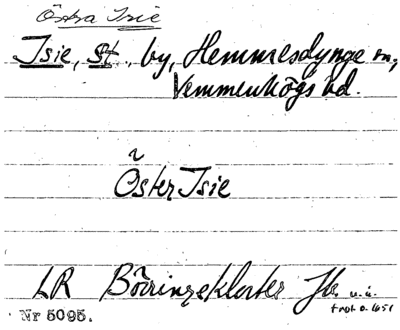 Östra Isie
Isie, St., by, Hemmesdynge sn,
Vemmenhögs hd.
Öster Isie
LR Börringekloster Jb.
Nr 5095.